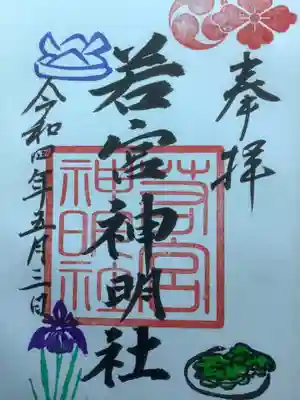 奉拝
若宮神明社
令和四年五月三日
若宮
神明社